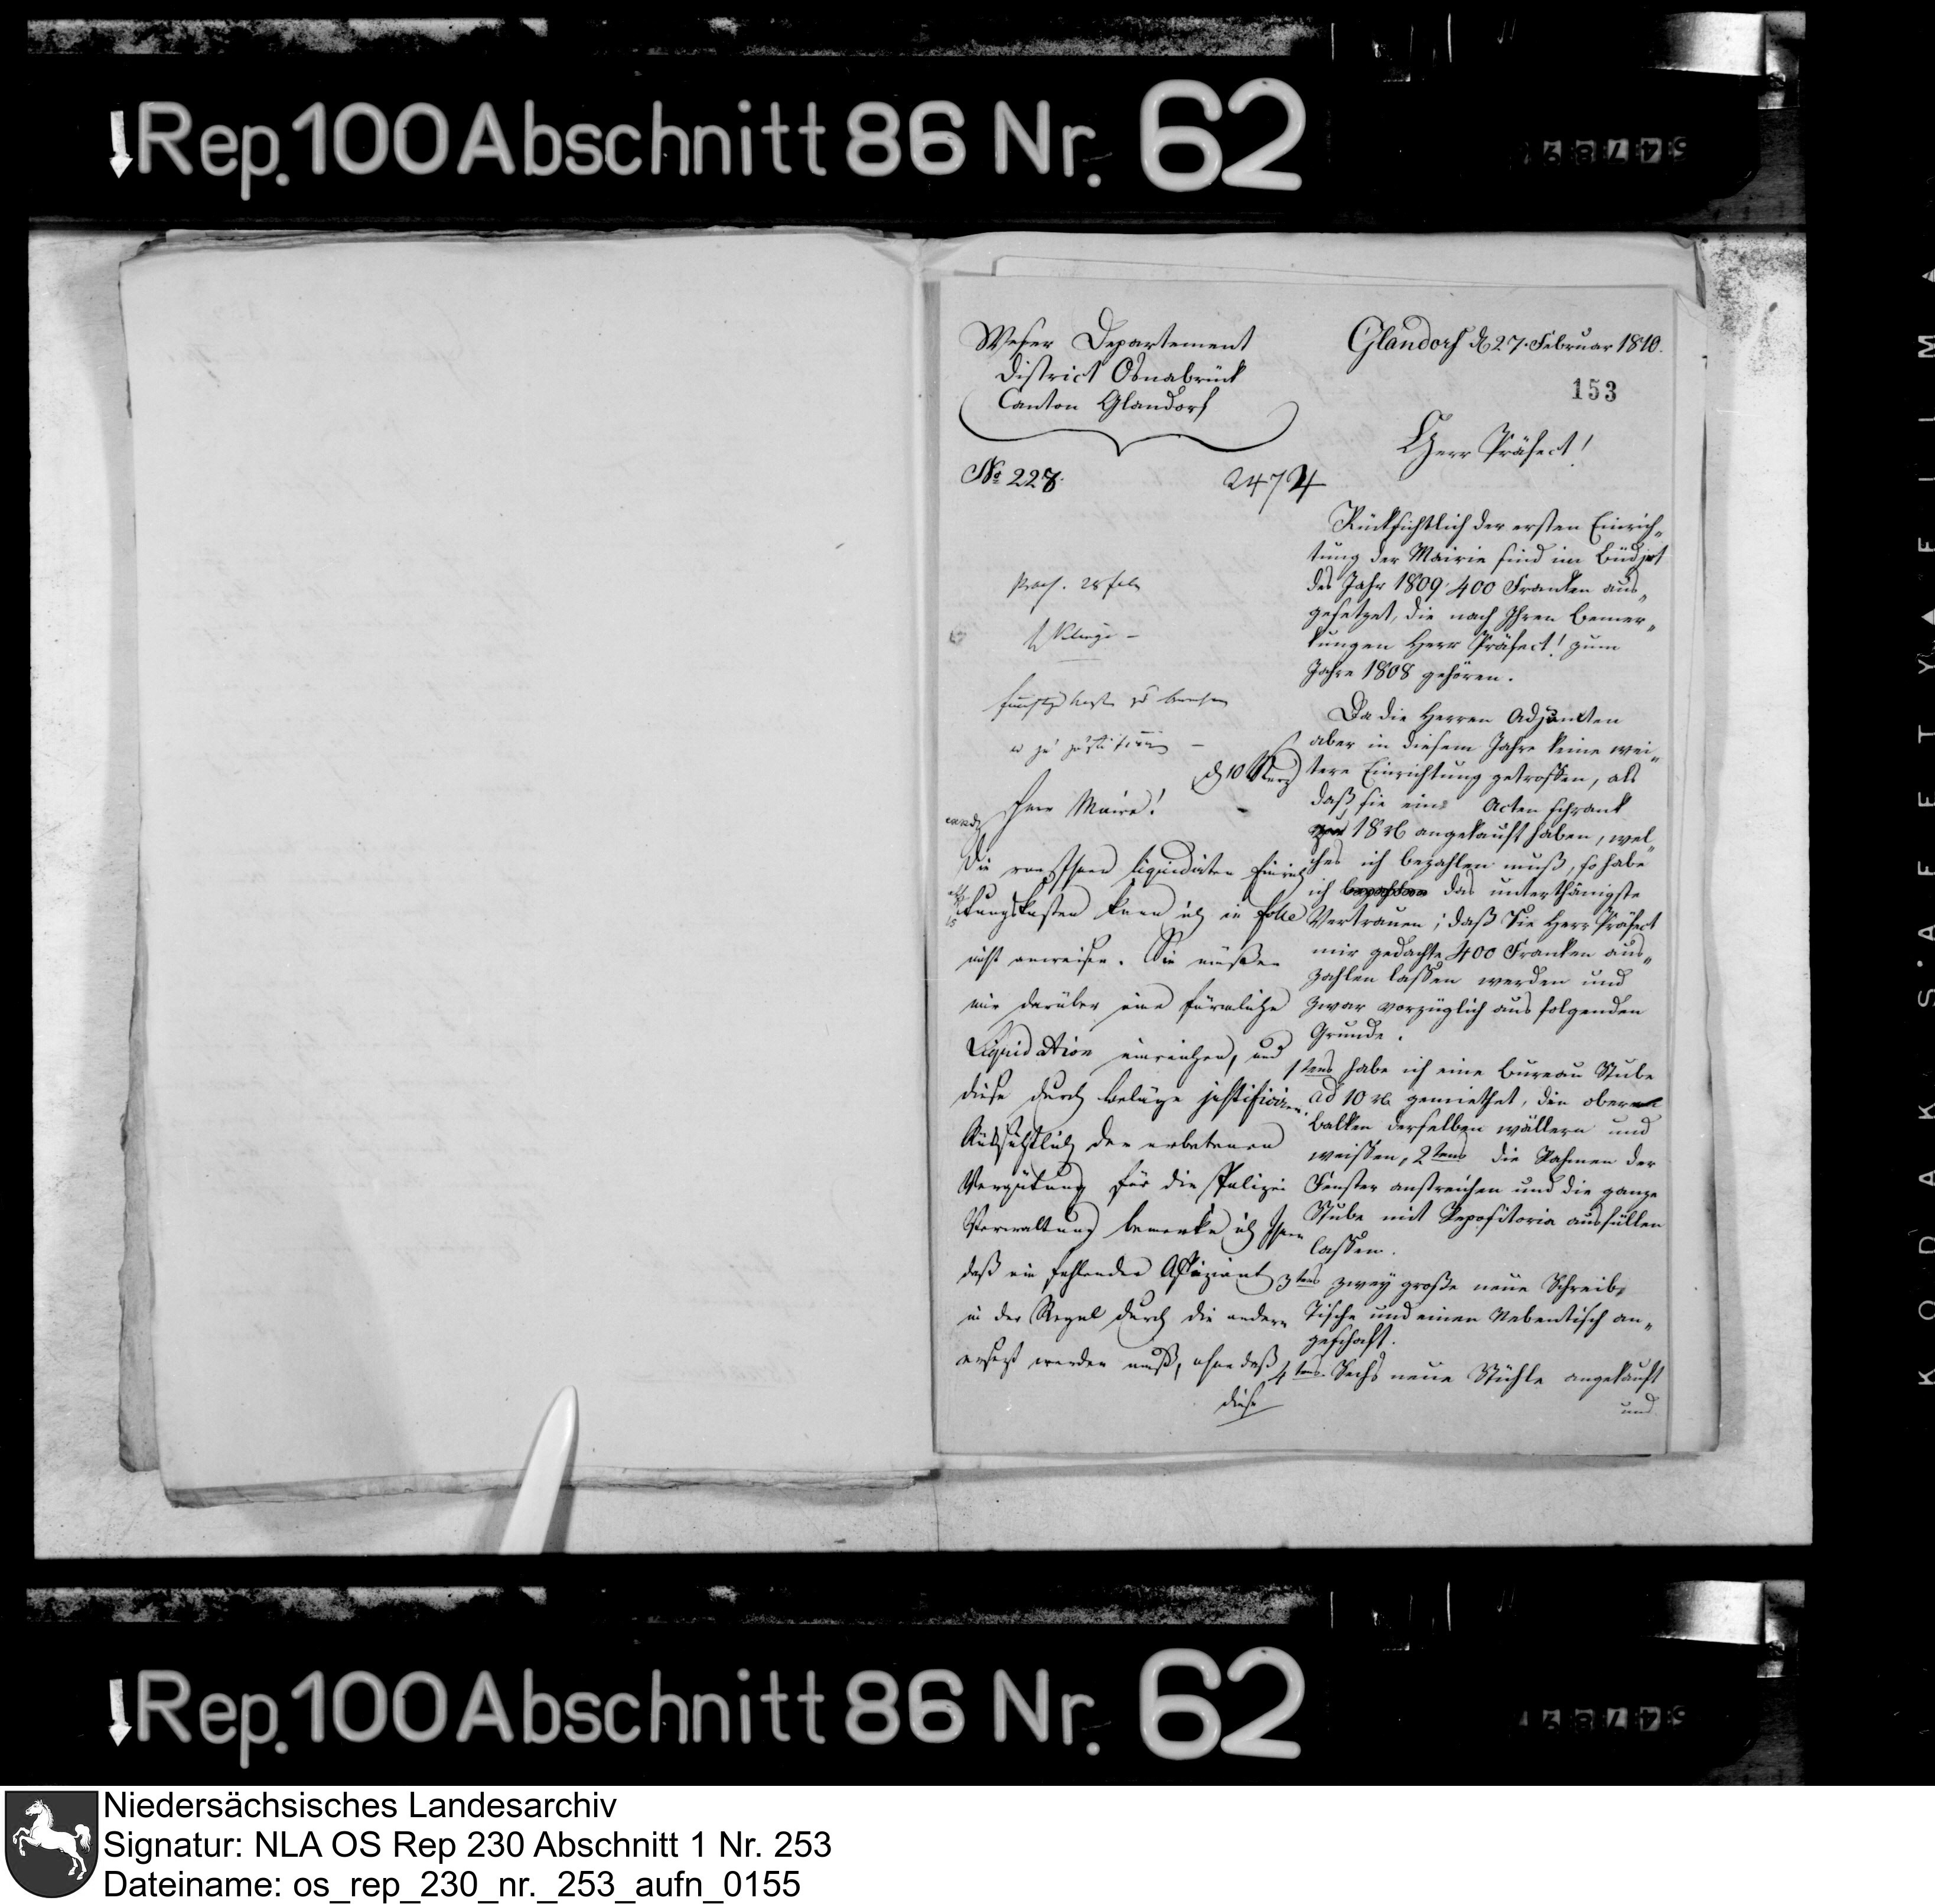 Rep. 100 Abschnitt 86 Nr. 62
Weser Departement
District Osnabrück
Canton Glandorf
Glandorf d 27. Februar 1810.
153
Herr Präfect!
№ 228.
2474
Rücksichtlich der ersten Einrich„
tung der Mairie sind im Büdjet
des Jahr 1809 400 Franken aus„
gesetzet, die nach Ihren Bemer„
kungen Herr Präfect! zum
Jahre 1808 gehören.
Da die Herren Adjuncten
aber in diesem Jahre keine wei„
tere Einrichtung getroffen, als
daß sie ein Acten schrank
18 angekauft haben, wel„
ches ich bezahlen muß, so habe
ich das unterthänigste
Vertrauen; daß Sie Herr Präfect
mir gedachte 400 Franken aus„
zahlen lassen werden und
zwar vorzüglich aus folgenden
Grunde.
1tens habe ich eine Bureau Stube
ad 10 gemiethet, die obern
Balken derselben wällern und
weissen, 2tens die Rahmen der
Fenster anstreichen und die ganze
Stube mit Repositoria ausfüllen
lassen.
3tens zwey große neue Schreib„
Tische und einen Nebentisch an„
geschaft.
4tens. Sechs neue Stühle angekauft
und
praes. 28 feb
zu justificiren –
d 10 Merz
Herr Maire!
Die von Ihnen liquidirten Einrich
tungskosten kann ich in folle
nicht anweisen. Sie müßen
mir darüber eine förmliche
Liquidation einreichen, und
diese durch Beläge justificiren.
Rücksichtlich der erbetenen
Vergütung für die Polizei
Verwaltung bemerke ich Ihnen
daß ein fehlender Offiziant
in der Regel durch die andern
ersezt werden muß, ohne daß
diese
Rep. 100 Abschnitt 86 Nr. 62
KODAK SAFETY FILM
Niedersächsisches Landesarchiv
Signatur: NLA OS Rep 230 Abschnitt 1 Nr. 253
Dateiname: os_rep_230_nr._253_aufn_0155